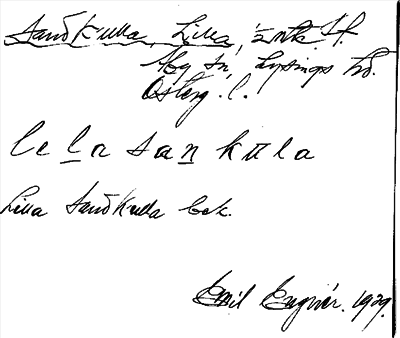 Sandkulla, Lilla,
Åby sn, Lysings hd.
Österg. l.
le l̲a sa n̲ kula
Lilla Sandkulla bek.
Emil 1929.